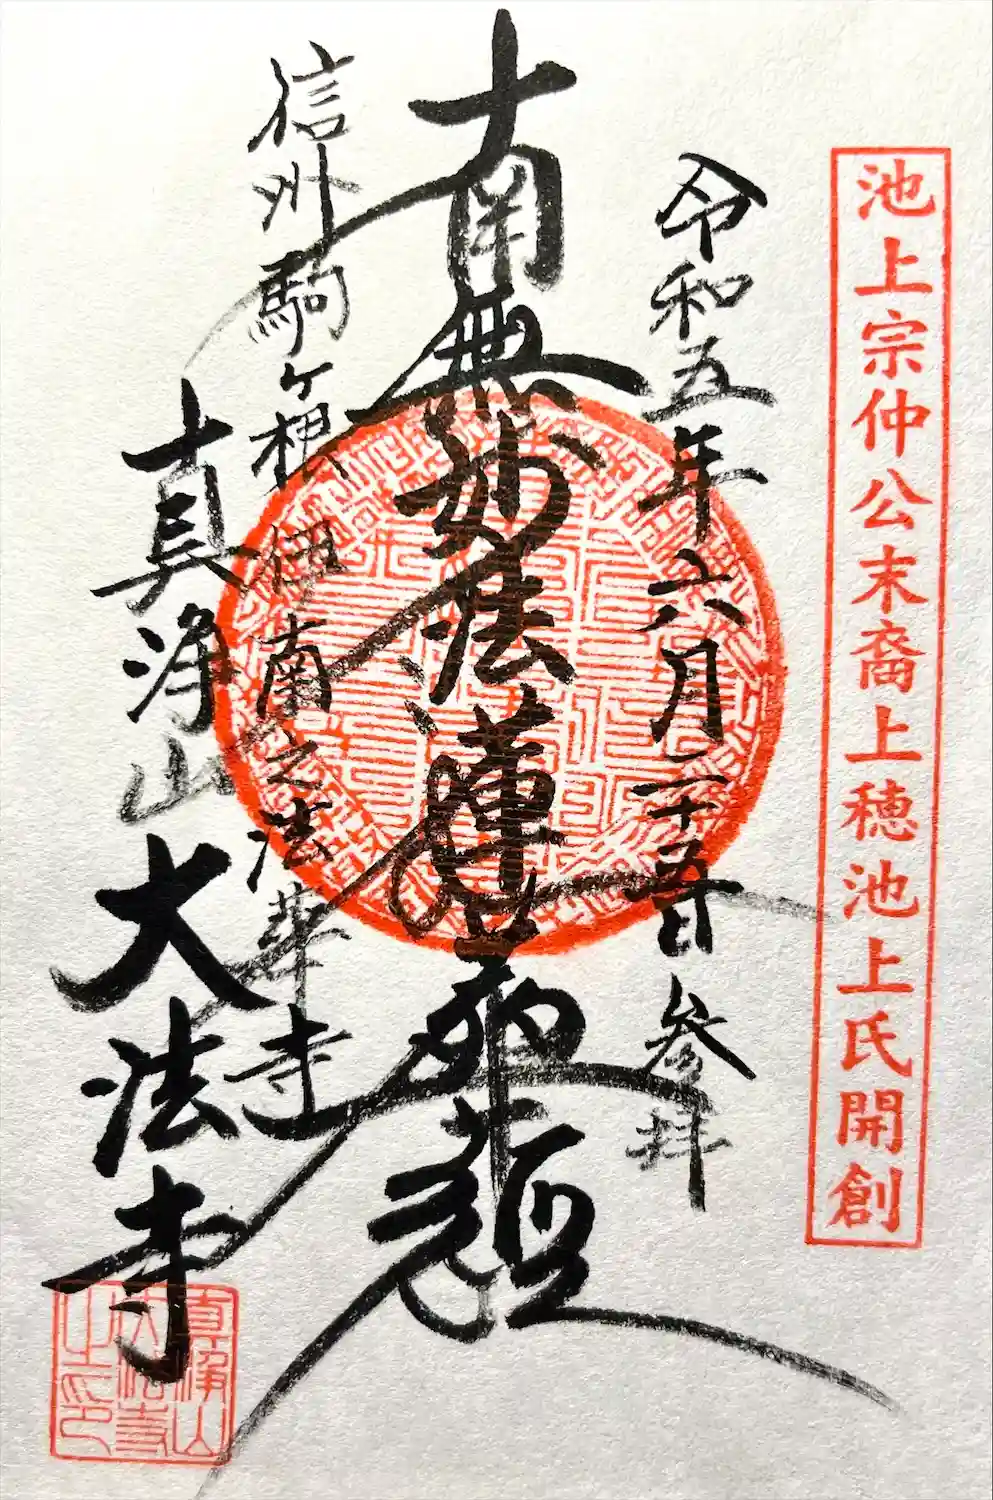 池上宗仲公末裔上穂池上氏開創
令和五年六月二十五日参拝
南無妙法蓮華経
信州駒ヶ根 伊南之法華寺
真浄山 大法寺
真浄山
大法寺
之印